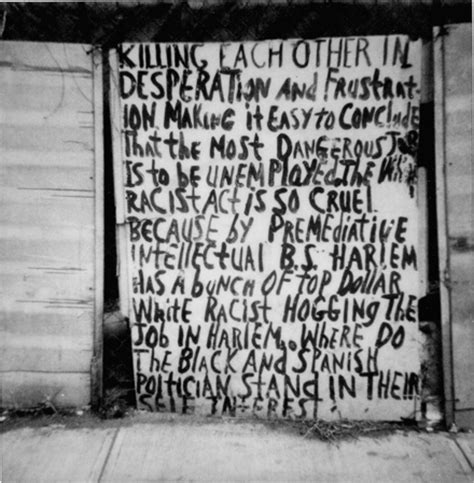 KILLING EACH OTHER IN
DESPERATION AND FRUSTRAT-
ION MAKING it EASY to CONCLUDE
that the MOST DANGEROUS JOB
IS to BE UNEMPLOYED. THE
RACIST ACT iS SO CRUEL
BECAUSE by PREMEDIATIVE
INTELLECTUAL B.S. HARLEM
HAS A bUNCH OF TOP DOLLAR
WHITE RACIST HOGGING THE
JOB IN HARLEM.. WHERE DO
THE BLACK AND SPANISH
POLITICIAN STAND IN THEIR
SELF INTEREST.